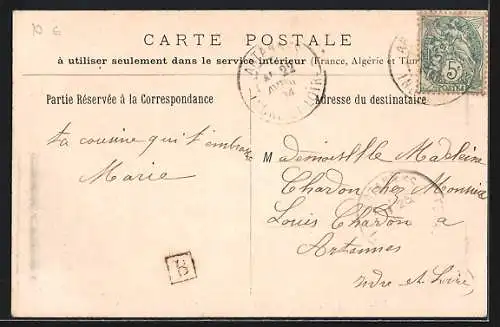 10 €
CARTE POSTALE
à utiliser seulement dans le service intérieur (France, Algérie et Tun
5c
POSTES
22
Partie Réservée à la Correspondance
Adresse du destinataire
ta cousine qui t'embrasse
Marie
Mademoiselle Madeleine
Chardon chez Monsieur
Louis Chardon à
Artannes
Indre et Loire